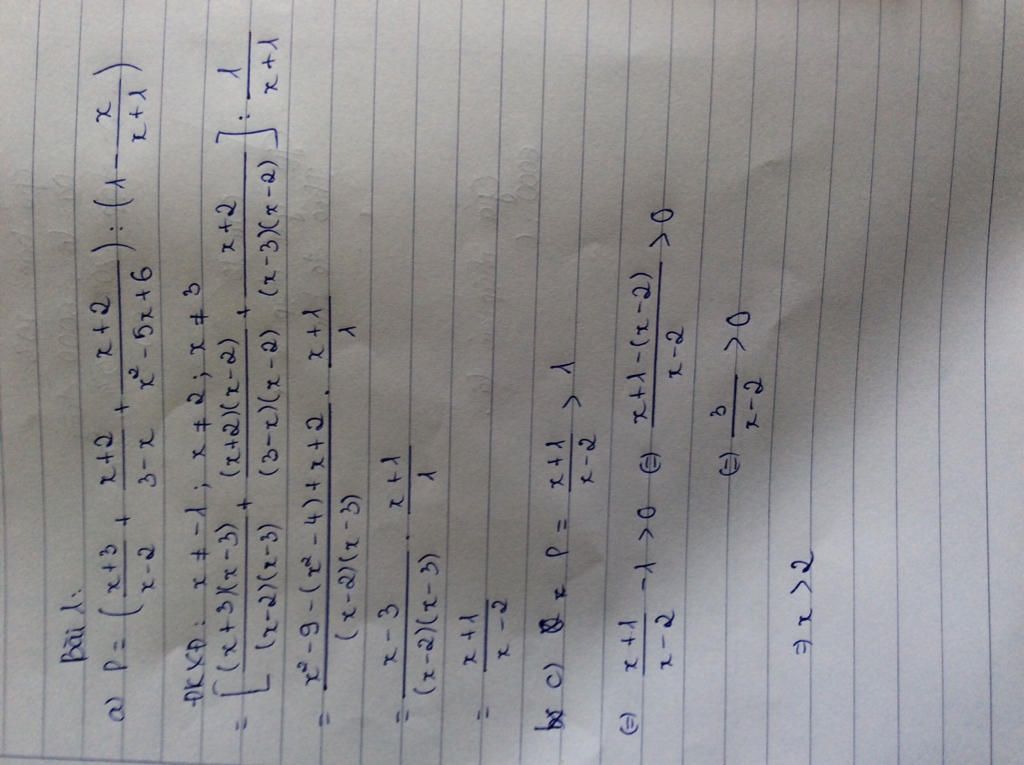 Bài 1:
a) P = (x+3/x-2 + x+2/3-x + x+2/x²-5x+6) : (1 - x/x+1)
ĐKXĐ: x ≠ -1; x ≠ 2; x ≠ 3
= [(x+3)(x-3)/(x-2)(x-3) + (x+2)(x-2)/(3-x)(x-2) + x+2/(x-3)(x-2)] : 1/x+1
= x²-9-(x²-4)+x+2/(x-2)(x-3) . x+1/1
= x-3/(x-2)(x-3) . x+1/1
= x+1/x-2
c) P = x+1/x-2 > 1
(=) x+1/x-2 -1 > 0 (=) x+1-(x-2)/x-2 > 0
(=) 3/x-2 > 0
⇒ x > 2